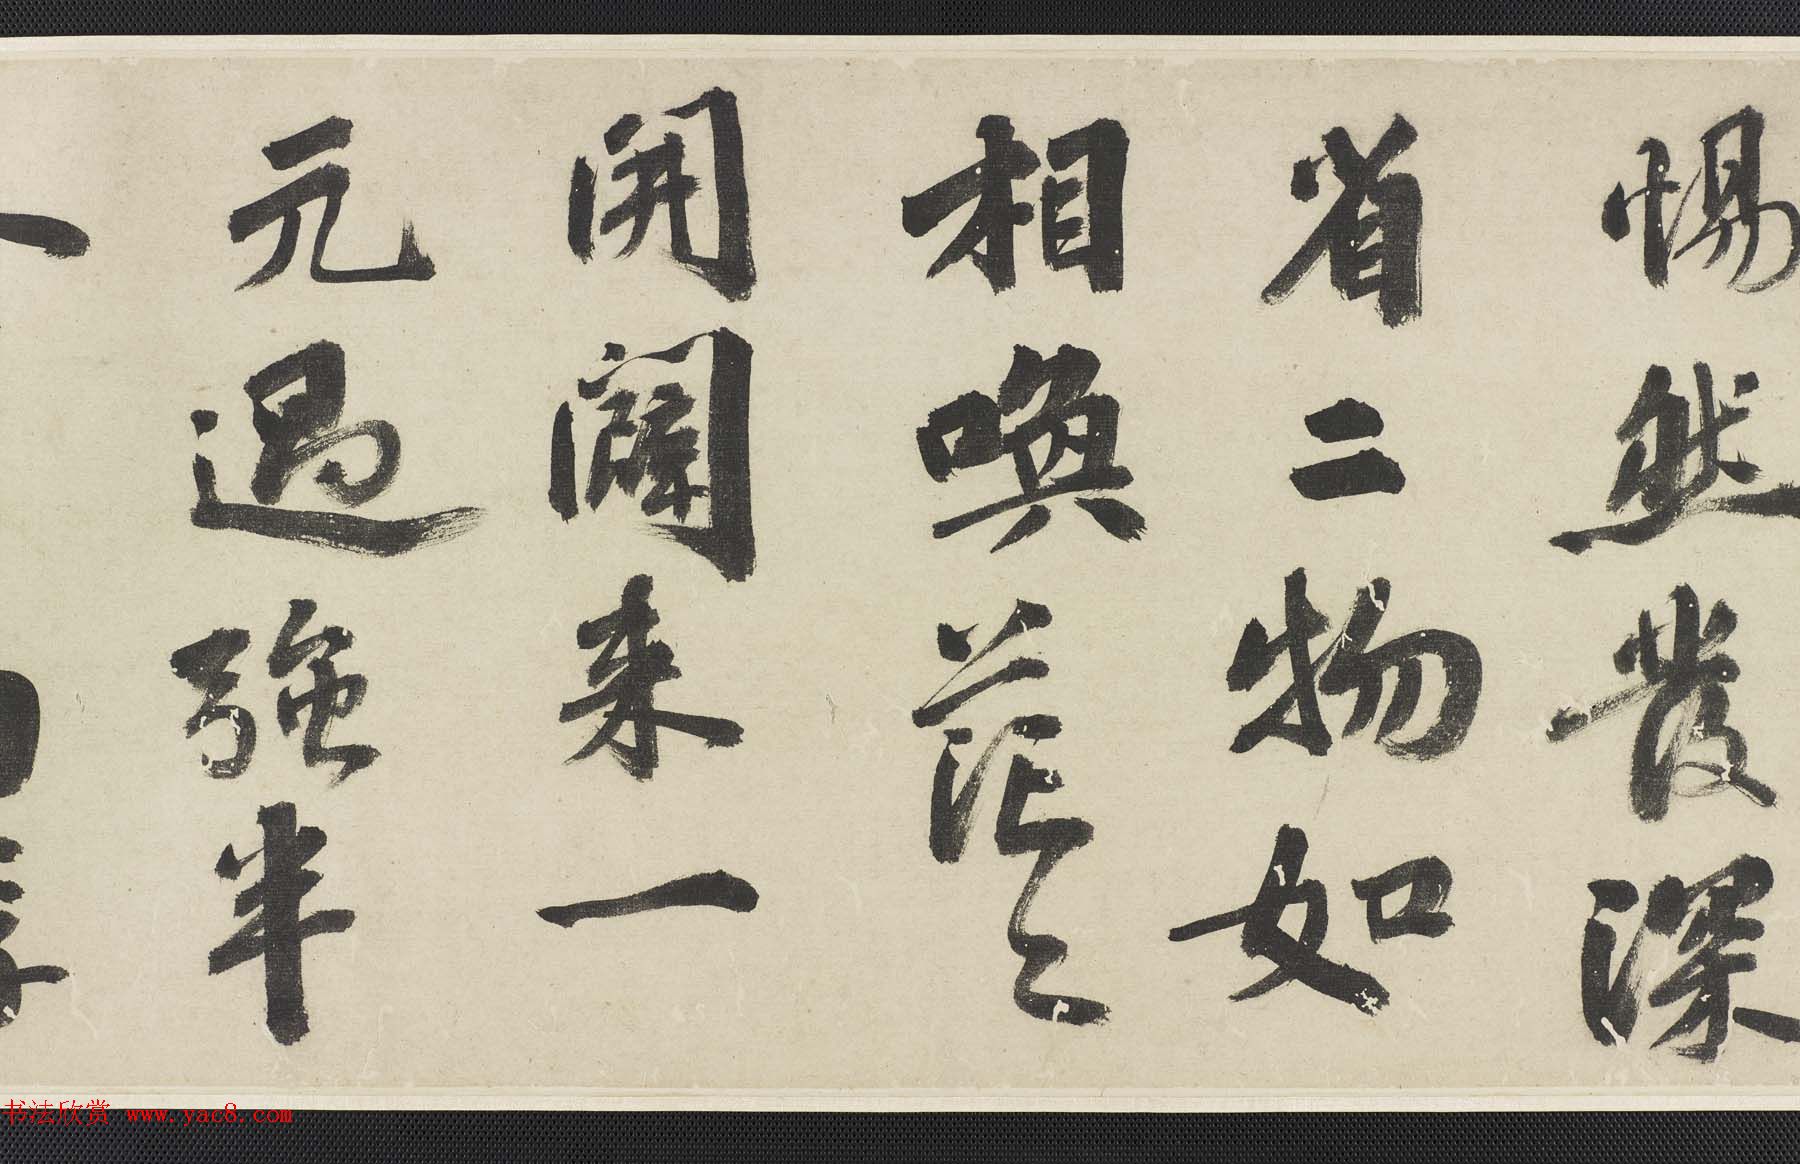 惕然發深
省二物如
相喚茫々
開闢来一
元過強半
書法欣赏 www.yac8.com